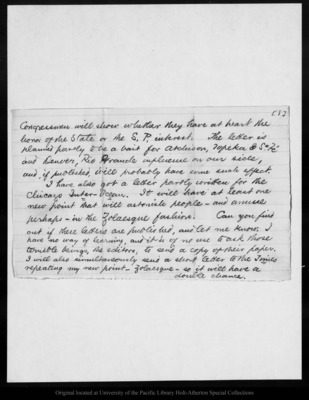 (3)
Congressmen will show whether they have at heart the
honor of the State or the S. P. interest. The letter is
planned partly to be a bait for Atchison, Topeka & Sa Fe
and Denver, Rio Grande influence on our side,
and if published will probably have some such effect.
I have also got a letter partly written for the
Chicago Inter-Ocean. It will have at least one
new point that will astonish people - and amuse
perhaps - in the Zolaesque fashion. Can you find
out if these letters are published, and let me know. I
have no way of learning, and it is of no use to ask those
terrible beings, the editors, to send a copy of their paper.
I will also simultaneously send a short letter to the Times
repeating my new point - Zolaesque - so it will have a
double chance.
Original located at University of the Pacific Library Holt-Atherton Special Collections